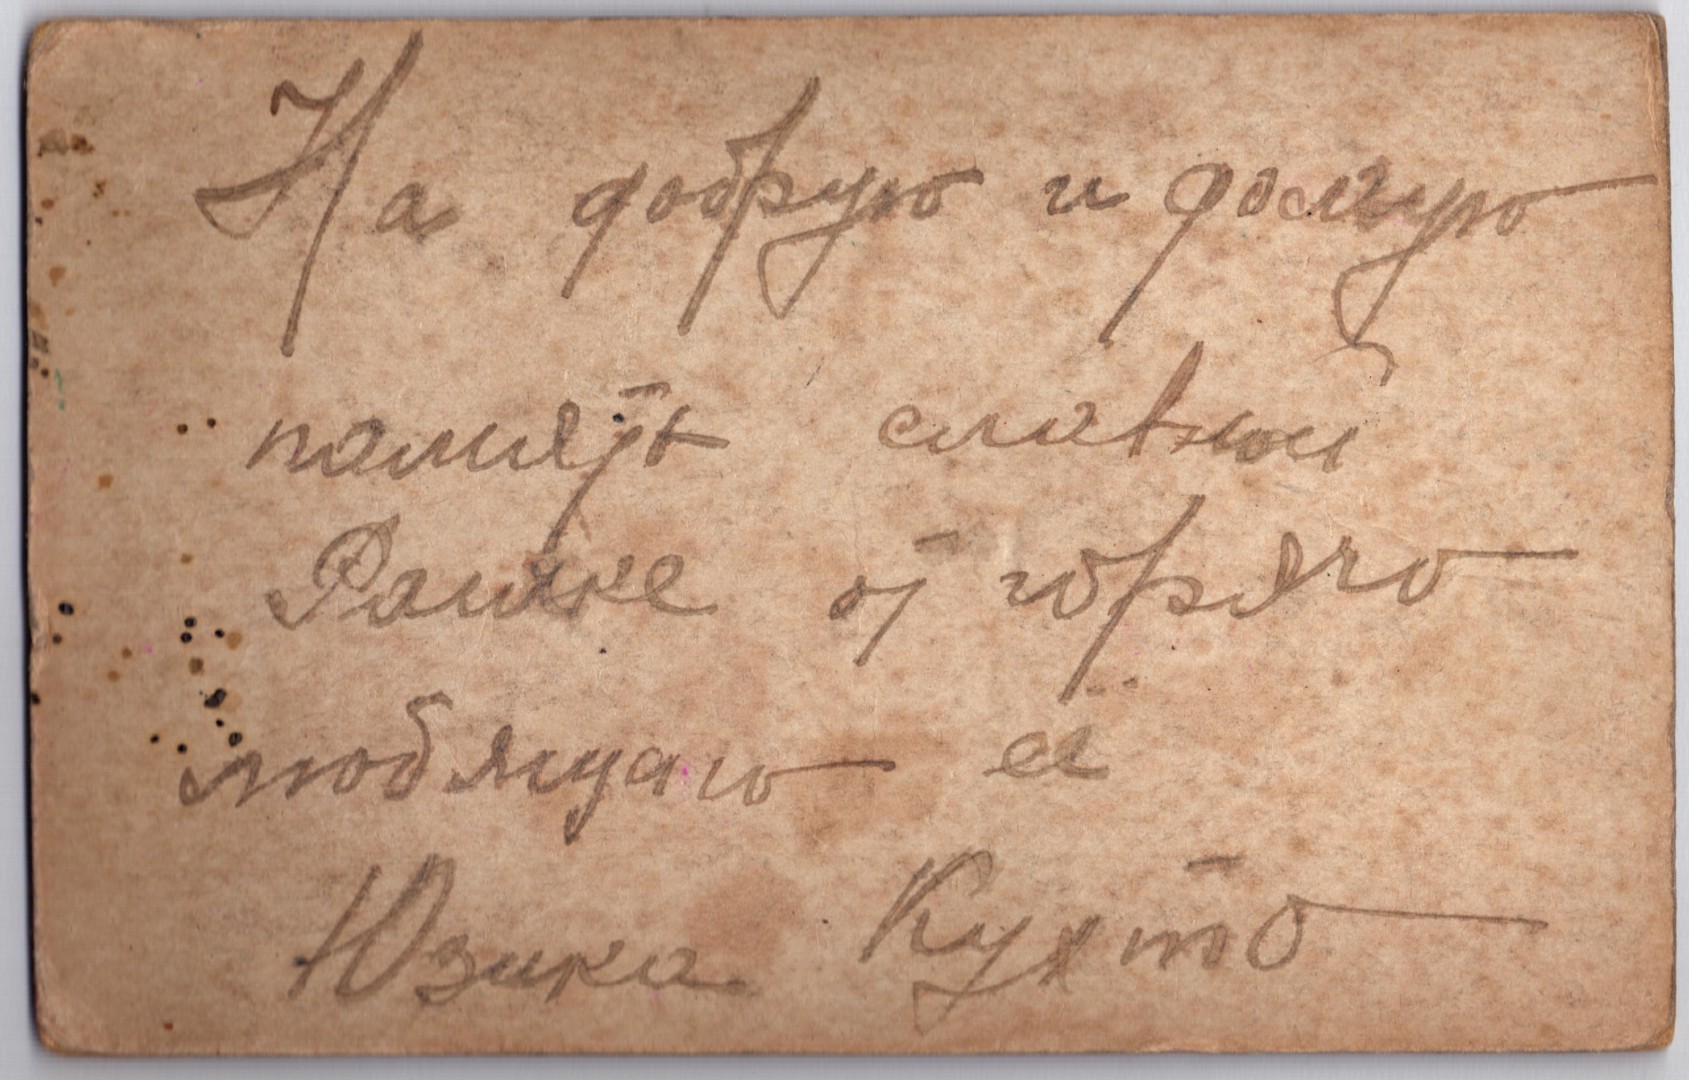 На добрую и долгую
память славной
Раичке от горячо
любящаго ея
Юзика Кухто